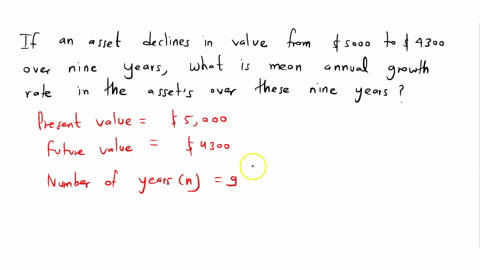 If an asset declines in value from $5000 to $4300
over nine years, what is mean annual growth
rate in the asset's over these nine years?
Present value = $5,000
Future value = $4300
Number of years (n) = 9